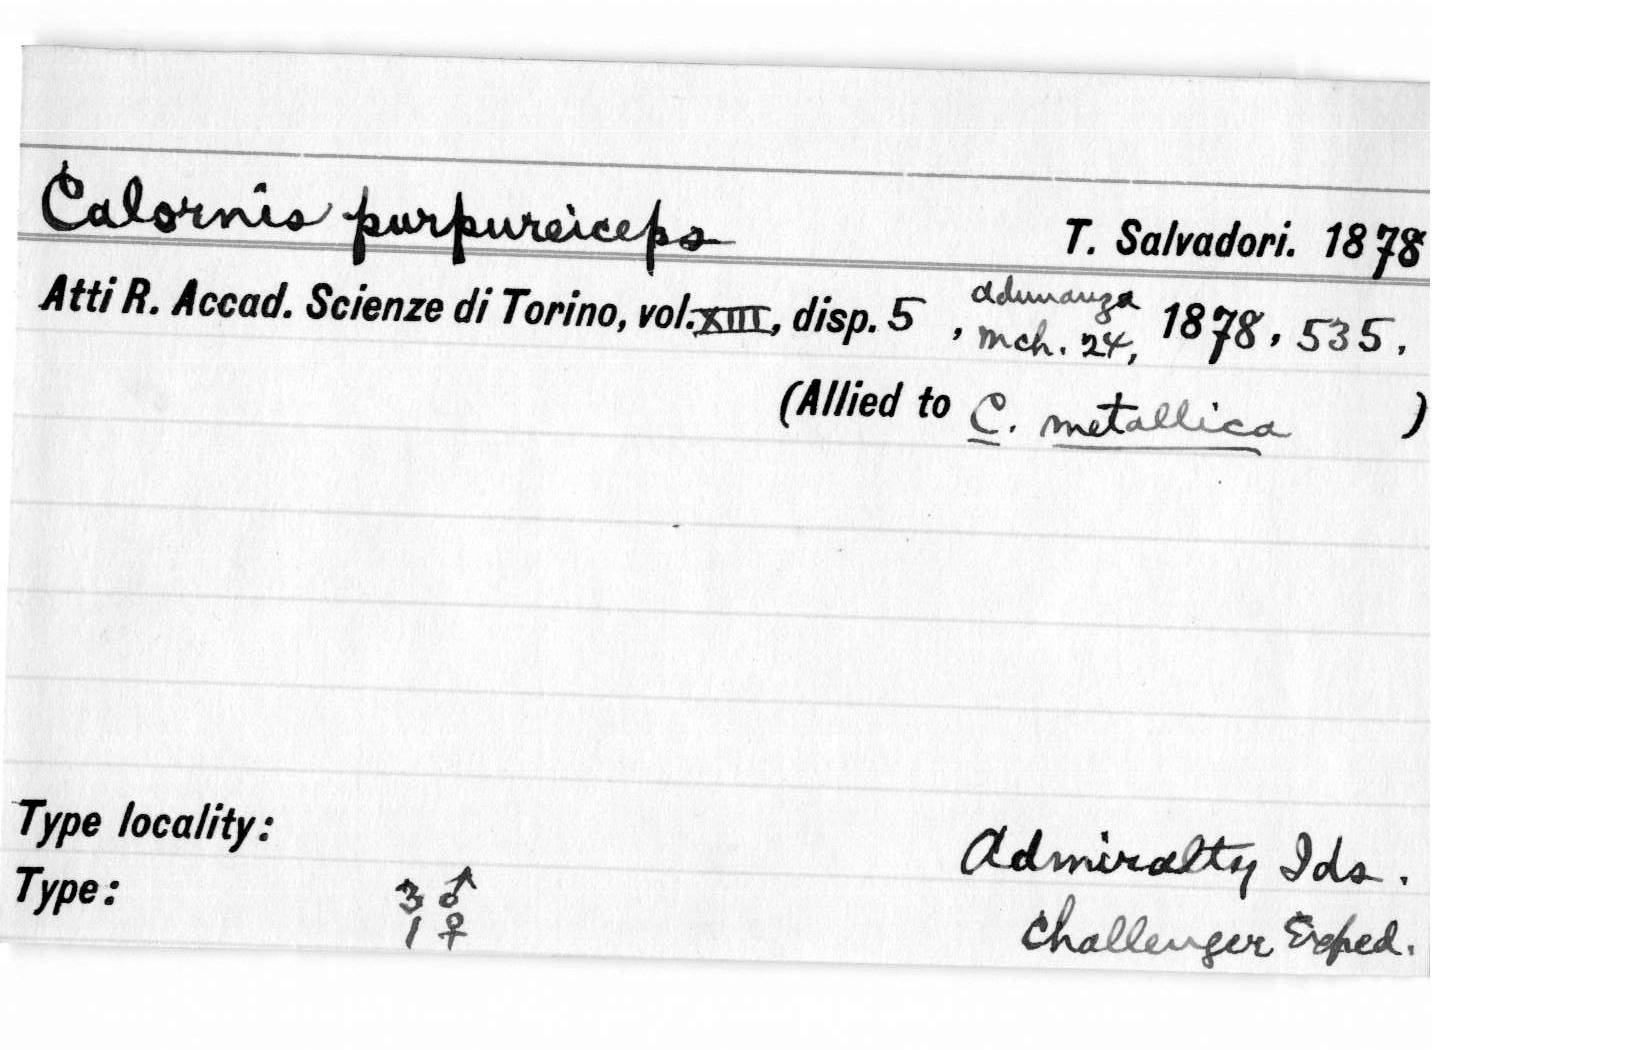 Calornis purpureiceps T. Salvadori. 1878
Atti R. Accad. Scienze di Torino, vol. XIII, disp. 5, adunanza Mch. 24, 1878, 535.
(Allied to C. metallica )
Type locality: Admiralty Ids.
Type: 3 ♂
1 ♀ Challenger Exped.